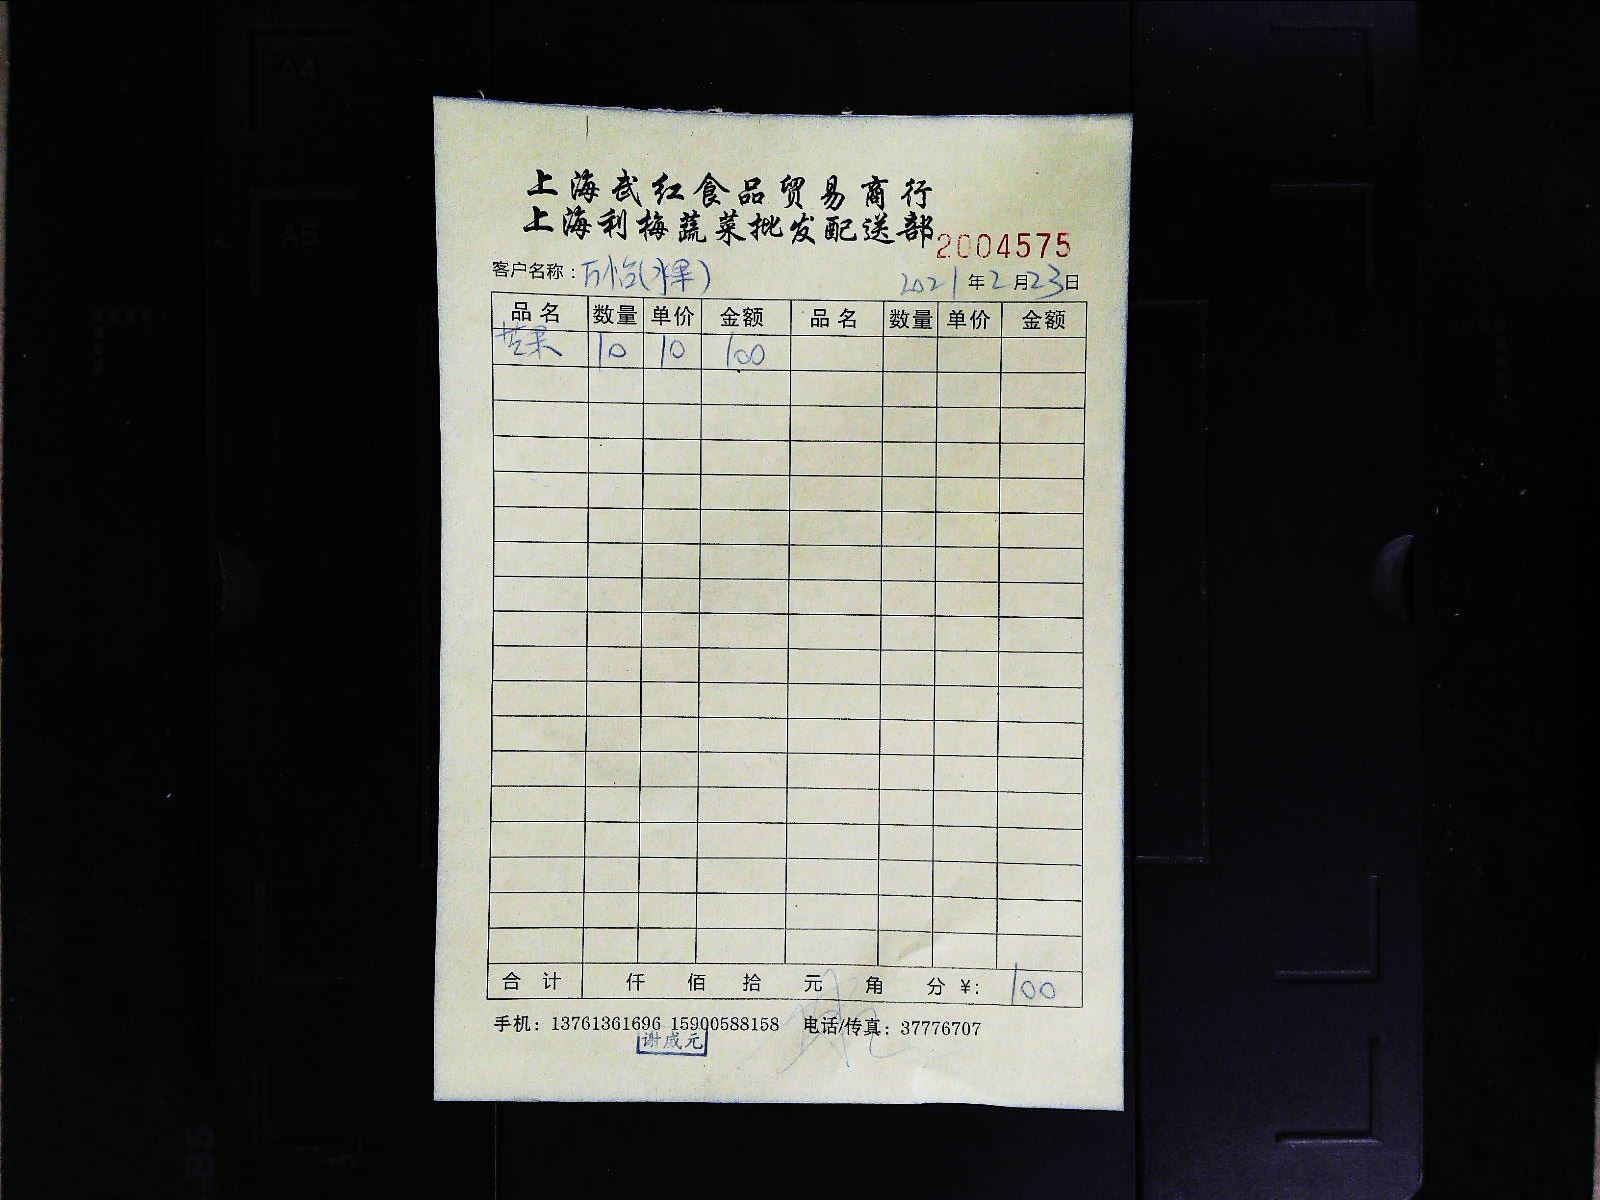 上海武红食品贸易商行
上海利梅蔬菜批发配送部
2004575
客户名称：万怡(水果) 2021年2月23日
品名 数量 单价 金额 品名 数量 单价 金额
苹果 10 10 100
合计 仟 佰 拾 元 角 分 ¥: 100
手机：13761361696 15900588158 电话/传真：37776707
谢咸元
A4
A5
B5